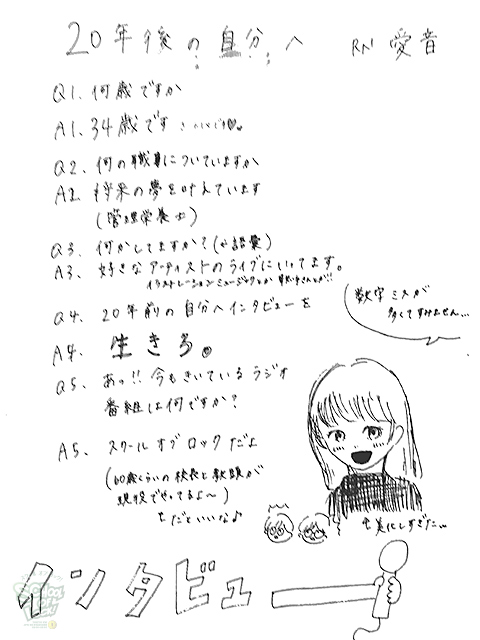 20年後の自分へ RN 愛音
Q1. 何歳ですか
A1. 34歳です
Q2. 何の職業についていますか
A2. 将来の夢を叶えています
(管理栄養士)
Q3. 何かしてますか?(←語彙)
A3. 好きなアーティストのライブにいってます。
Q4. 20年前の自分へインタビューを
A4. 生きろ。
Q5. あっ!!今もきいているラジオ
番組は何ですか?
A5. スクールオブロックだよ
(60歳くらいの校長と教頭が
現役でやってるよ〜)
だといいな♪
誤字ミスが
多くてすみません...
美化しすぎた
インタビュー